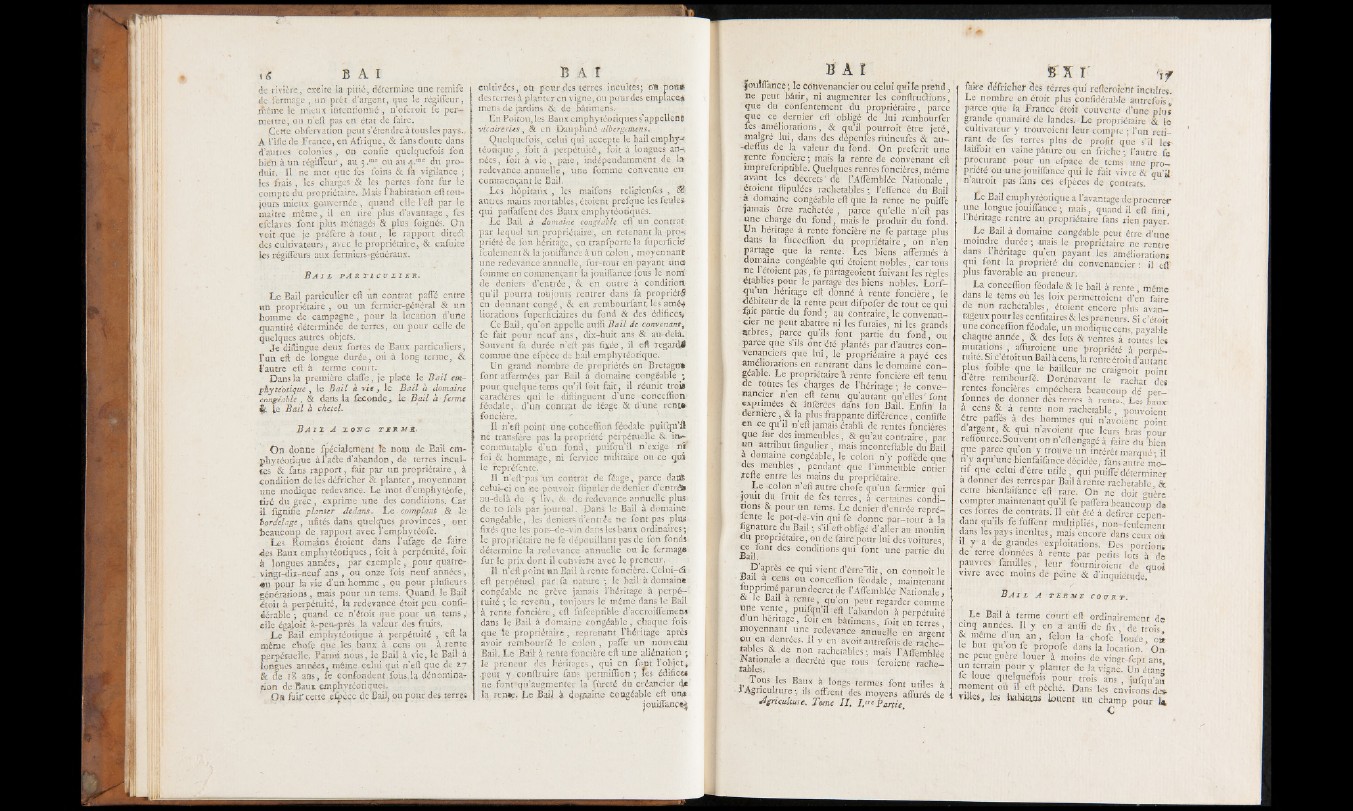 16 B A I
de rivière, excite la pitié, détermine une remise
de fermage, un prêt d'argent, que le régisseur,
même le mieux intentionné, n'oseroit se per-
mettre, ou n'est pas en état de faire.
Cette observation peut s'étendre à tous les pays.
A l'isle de France, en Afrique, & sans doute dans
d'autres colonies, on confie quelquefois son
bien à un régisseur, au 5.me ou au 4.me du pro-
duit. Il ne met que ses soins & sa vigilance ;
les frais, les charges & les pertes sont sur le
compte du propriétaire. Mais l'habitation est tou-
jours mieux gouvernée, quand elle l'est par le
maître même, il en tire plus d'avantage, ses
esclaves sont plus ménagés & plus soignés. On
voit que je préfère à tout, le rapport direct
des cultivateurs, avec le propriétaire, & ensuite
les régisseurs aux fermiers-généraux.
BAIL PARTICULIER.
Le Bail particulier est un contrat passé entre
un propriétaire, ou un fermier-général & un
homme de campagne, pour la location d'une
quantité déterminée de terres, ou pour celle de
quelques autres objets.
Je distingue deux sortes de Baux particuliers,
l'un est de longue durée, ou à long terme, &
l'autre est à terme court.
Dans la première classe, je place le Bail em-
phytéotique, le Bail à vie, le Bail à domaine
congéable, & dans la seconde, le Bail à ferme
& le Bail à chetel.
BAIL A LONG TERME.
On donne spécialement le nom de Bail em-
phytéotique à l'acte d'abandon, de terres incul-
tes & sans rapport, fait par un propriétaire, à
condition de les défricher & planter, moyennant
une modique redevance. Le mot d'emphytéose,
tiré du grec, exprime une des conditions. Car
il signifie planter dedans. Le complant & le
bordelage, usités dans quelques provinces, ont
beaucoup de rapport avec l'emphytéose.
Les Romains étoient dans l'usage de faire
des Baux emphytéotiques, soit à perpétuité, soit
à longues années, par exemple, pour quatre-
vingt-dix-neuf ans, ou onze fois neuf années,
ou pour la vie d'un homme, ou pour plusieurs
générations, mais pour un tems. Quand le Bail
étoit à perpétuité, la redevance étoit peu consi-
dérable ; quand ce n'étoit que pour un tems,
elle égaloit à-peu-près la valeur des fruits.
Le Bail emphytéotique à perpétuité, est la
même chose que les baux à cens ou à rente
perpétuelle. Parmi nous, le Bail à vie, le Bail à
longues années, même celui qui n'est que de 27
& de 18 ans, se confondent sous la dénomina-
tion de Baux emphytéotiques.
On fait cette espèce de Bail, ou pour des terres
B A I
cultivées, ou pour des terres incultes; ou pour
des terres à planter en vigne, ou pour des emplace-
mens de jardins & de bâtimens.
En Poitou, les Baux emphytéotiques s'appellent
vicaireries, & en Dauphiné albergemens.
Quelquefois, celui qui accepte le bail emphy-
téotique, soit à perpétuité, soit à longues an-
nées, soit à vie, paie, indépendamment de la
redevance annuelle, une somme convenue en
commençant le Bail.
Les hôpitaux, les maisons religieuses, &
autres mains mortables, étoient presque les seules
qui passassent des Baux emphytéotiques.
Le Bail à domaine congéable est un contrat
par lequel un propriétaire, en retenant la pro-
priété de son héritage, en transporte la superficie
seulement & la jouissance à un colon, moyennant
une redevance annuelle, sur-tout en payant une
somme en commençant la jouissance sous le nom
de deniers d'entrée, & en outre à condition
qu'il pourra toujours rentrer dans sa propriété
en donnant congé, & en remboursant les amé-
liorations superficiaires du fond & des édifices.
Ce Bail, qu'on appelle aussi Bail de convenant,
se fait pour neuf ans, dix-huit ans & au-delà.
Souvent sa durée n'est pas fixée, il est regardé
comme une espèce de bail emphytéotique.
Un grand nombre de propriétés en Bretagne
sont affermées par Bail à domaine congéable ;
pour quelque tems qu'il soit fait, il réunit trois
caractères qui le distinguent d'une concession
féodale, d'un contrat de féage & d'une rente
foncière.
Il n'est point une concession féodale puisqu'il
ne transfère pas la propriété perpétuelle & in-
commutable d'un fond, puisqu'il n'exige ni
foi & hommage, ni service militaire ou ce qui
le représente.
Il n'est pas un contrat de féage, parce dans
celui-ci on ne pouvoit stipuler de denier d'entrée
au-delà de 5 liv. & de redevance annuelle plus
de 10 sols par journal. Dans le Bail à domaine
congéable, les deniers d'entrée ne sont pas plus
fixés que les pots-de-vin dans les baux ordinaires ;
le propriétaire ne se dépouillant pas de son fonds
détermine la redevance annuelle ou le fermage
sur le prix dont il convient avec le preneur.
Il n'est point un Bail à rente foncière. Celui-ci
est perpétuel par sa nature ; le bail à domaine
congéable ne grève jamais l'héritage à perpé-
tuité ; le revenu, toujours le même dans le Bail
à rente foncière, est susceptible d'accroissemens
dans le Bail à domaine congéable, chaque fois
que le propriétaire, reprenant l'héritage après
avoir remboursé le colon, passe un nouveau
Bail. Le Bail à rente foncière est une aliénation ;
le preneur des héritages, qui en sont l'objet,
peut y construire sans permission ; ses édifices
ne font qu'augmenter la sûreté du créancier de
la rente. Le Bail à domaine congéable est une
jouissance,
B A I
jouissance ; le convenancier ou celui qui le prend,
ne peut bâtir, ni augmenter les constructions,
que du consentement du propriétaire, parce
que ce dernier est obligé de lui rembourser
ses améliorations, & qu'il pourroit être jeté,
malgré lui, dans des dépenses ruineuses & au-
dessus de la valeur du fond. On prescrit une
rente foncière ; mais la rente de convenant est
imprescriptible. Quelques rentes foncières, même
avant les décrets de l'Assemblée Nationale,
étoient stipulées rachetables ; l'essence du Bail
à domaine congéable est que la rente ne puisse
jamais être rachetée, parce qu'elle n'est pas
une charge du fond, mais le produit du fond.
Un héritage à rente foncière ne se partage plus
dans la succession du propriétaire, on n'en
partage que la rente. Les biens affermés à
domaine congéable qui étoient nobles, car tous
ne l'étoient pas, se partageoient suivant les règles
établies pour le partage des biens nobles. Lors-
qu'un héritage est donné à rente foncière, le
débiteur de la rente peut disposer de tout ce qui
fait partie du fond ; au contraire, le convenan-
cier ne peut abattre ni les futaies, ni les grands
arbres, parce qu'ils font partie du fond, ou
parce que s'ils ont été plantés par d'autres con-
venanciers que lui, le propriétaire a payé ces
améliorations en rentrant dans le domaine con-
géable. Le propriétaire à rente foncière est tenu
de toutes les charges de l'héritage ; le conve-
nancier n'en est tenu qu'autant qu'elles sont
exprimées & insérées dans son Bail. Enfin la
dernière, & la plus frappante différence, consiste
en ce qu'il n'est jamais établi de rentes foncières
que sur des immeubles, & qu'au contraire, par
un attribut singulier, mais incontestable du Bail
à domaine congéable, le colon n'y possède que
des meubles, pendant que l'immeuble entier
reste entre les mains du propriétaire.
Le colon n'est autre chose qu'un fermier qui
jouit du fruit de ses terres, à certaines condi-
tions & pour un tems. Le denier d'entrée repré-
sente le pot-de-vin qui se donne par-tout à la
signature du Bail ; s'il est obligé d'aller au moulin
du propriétaire, ou de faire pour lui des voitures,
ce sont des conditions qui font une partie du
Bail.
D'après ce qui vient d'être dit, on connoît le
Bail à cens ou concession féodale, maintenant
supprimé par un decret de l'Assemblée Nationale,
& le Bail à rente, qu'on peut regarder comme
une vente, puisqu'il est l'abandon à perpétuité
d'un héritage, soit en bâtimens, soit en terres,
moyennant une redevance annuelle en argent
ou en denrées. Il y en avoit autrefois de rache-
tables & de non rachetables ; mais l'Assemblée
Nationale a decrété que tous seroient rache-
tables.
Tous les Baux à longs termes sont utiles à
l'Agriculture ; ils offrent des moyens assurés de
Agriculture. Tome II. I.re Partie.
B A I 17
faire défricher des terres qui resteroient incultes.
Le nombre en étoit plus considérable autrefois,
parce que la France étoit couverte d'une plus
grande quantité de landes. Le propriétaire & le
cultivateur y trouvoient leur compte ; l'un reti-
rant de ses terres plus de profit que s'il les
laissoit en vaine pâture ou en friche ; l'autre se
procurant pour un espace de tems une pro-
priété ou une jouissance qui le fait vivre & qu'il
n'auroit pas sans ces espèces de contrats.
Le Bail emphytéotique a l'avantage de procurer
une longue jouissance ; mais, quand il est fini,
l'héritage rentre au propriétaire sans rien payer.
Le Bail à domaine congéable peut être d'une
moindre durée ; mais le propriétaire ne rentre
dans l'héritage qu'en payant les améliorations
qui sont la propriété du convenancier : il est
plus favorable au preneur.
La concession féodale & le bail à rente, même
dans le tems où les loix permettoient d'en faire
de non rachetables, étoient encore plus avan-
tageux pour les censitaires & les preneurs. Si c'étoit
une concession féodale, un modique cens, payable
chaque année, & des lots & ventes à toutes les
mutations, assuroient une propriété à perpé-
tuité. Si c'étoit un Bail à cens, la rente étoit d'autant
plus foible que le bailleur ne craignoit point
d'être remboursé. Dorénavant le rachat des
rentes foncières empêchera beaucoup de per-
sonnes de donner des terres à rente. Les baux
à cens & à rente non rachetable, pouvoient
être passés à des hommes qui n'avoient point
d'argent, & qui n'avoient que leurs bras pour
ressource. Souvent on n'est engagé à faire du bien
que parce qu'on y trouve un intérêt marqué ; il
n'y a qu'une bienfaisance décidée, sans autre mo-
tif que celui d'être utile, qui puisse déterminer
à donner des terres par Bail à rente rachetable, &
cette bienfaisance est rare. On ne doit guère
compter maintenant qu'il se passera beaucoup de
ces sortes de contrats. Il eût été à desirer cepen-
dant qu'ils se fussent multipliés, non-seulement
dans les pays incultes, mais encore dans ceux où
il y a de grandes exploitations. Des portions
de terre données à rente par petits lots à de
pauvres familles, leur fourniroient de quoi
vivre avec moins de peine & d'inquiétude.
BAIL A TERME COURT.
Le Bail à terme court est ordinairement de
cinq années. Il y en a aussi de six, de trois,
& même d'un an, selon la chose louée, ou
le but qu'on se propose dans la location. On
ne peut guère louer à moins de vingt-sept ans,
un terrain pour y planter de la vigne. Un étang
se loue quelquefois pour trois ans, jusqu'au
moment où il est pêché. Dans les environs des
villes, les habitans louent un champ pour la
C